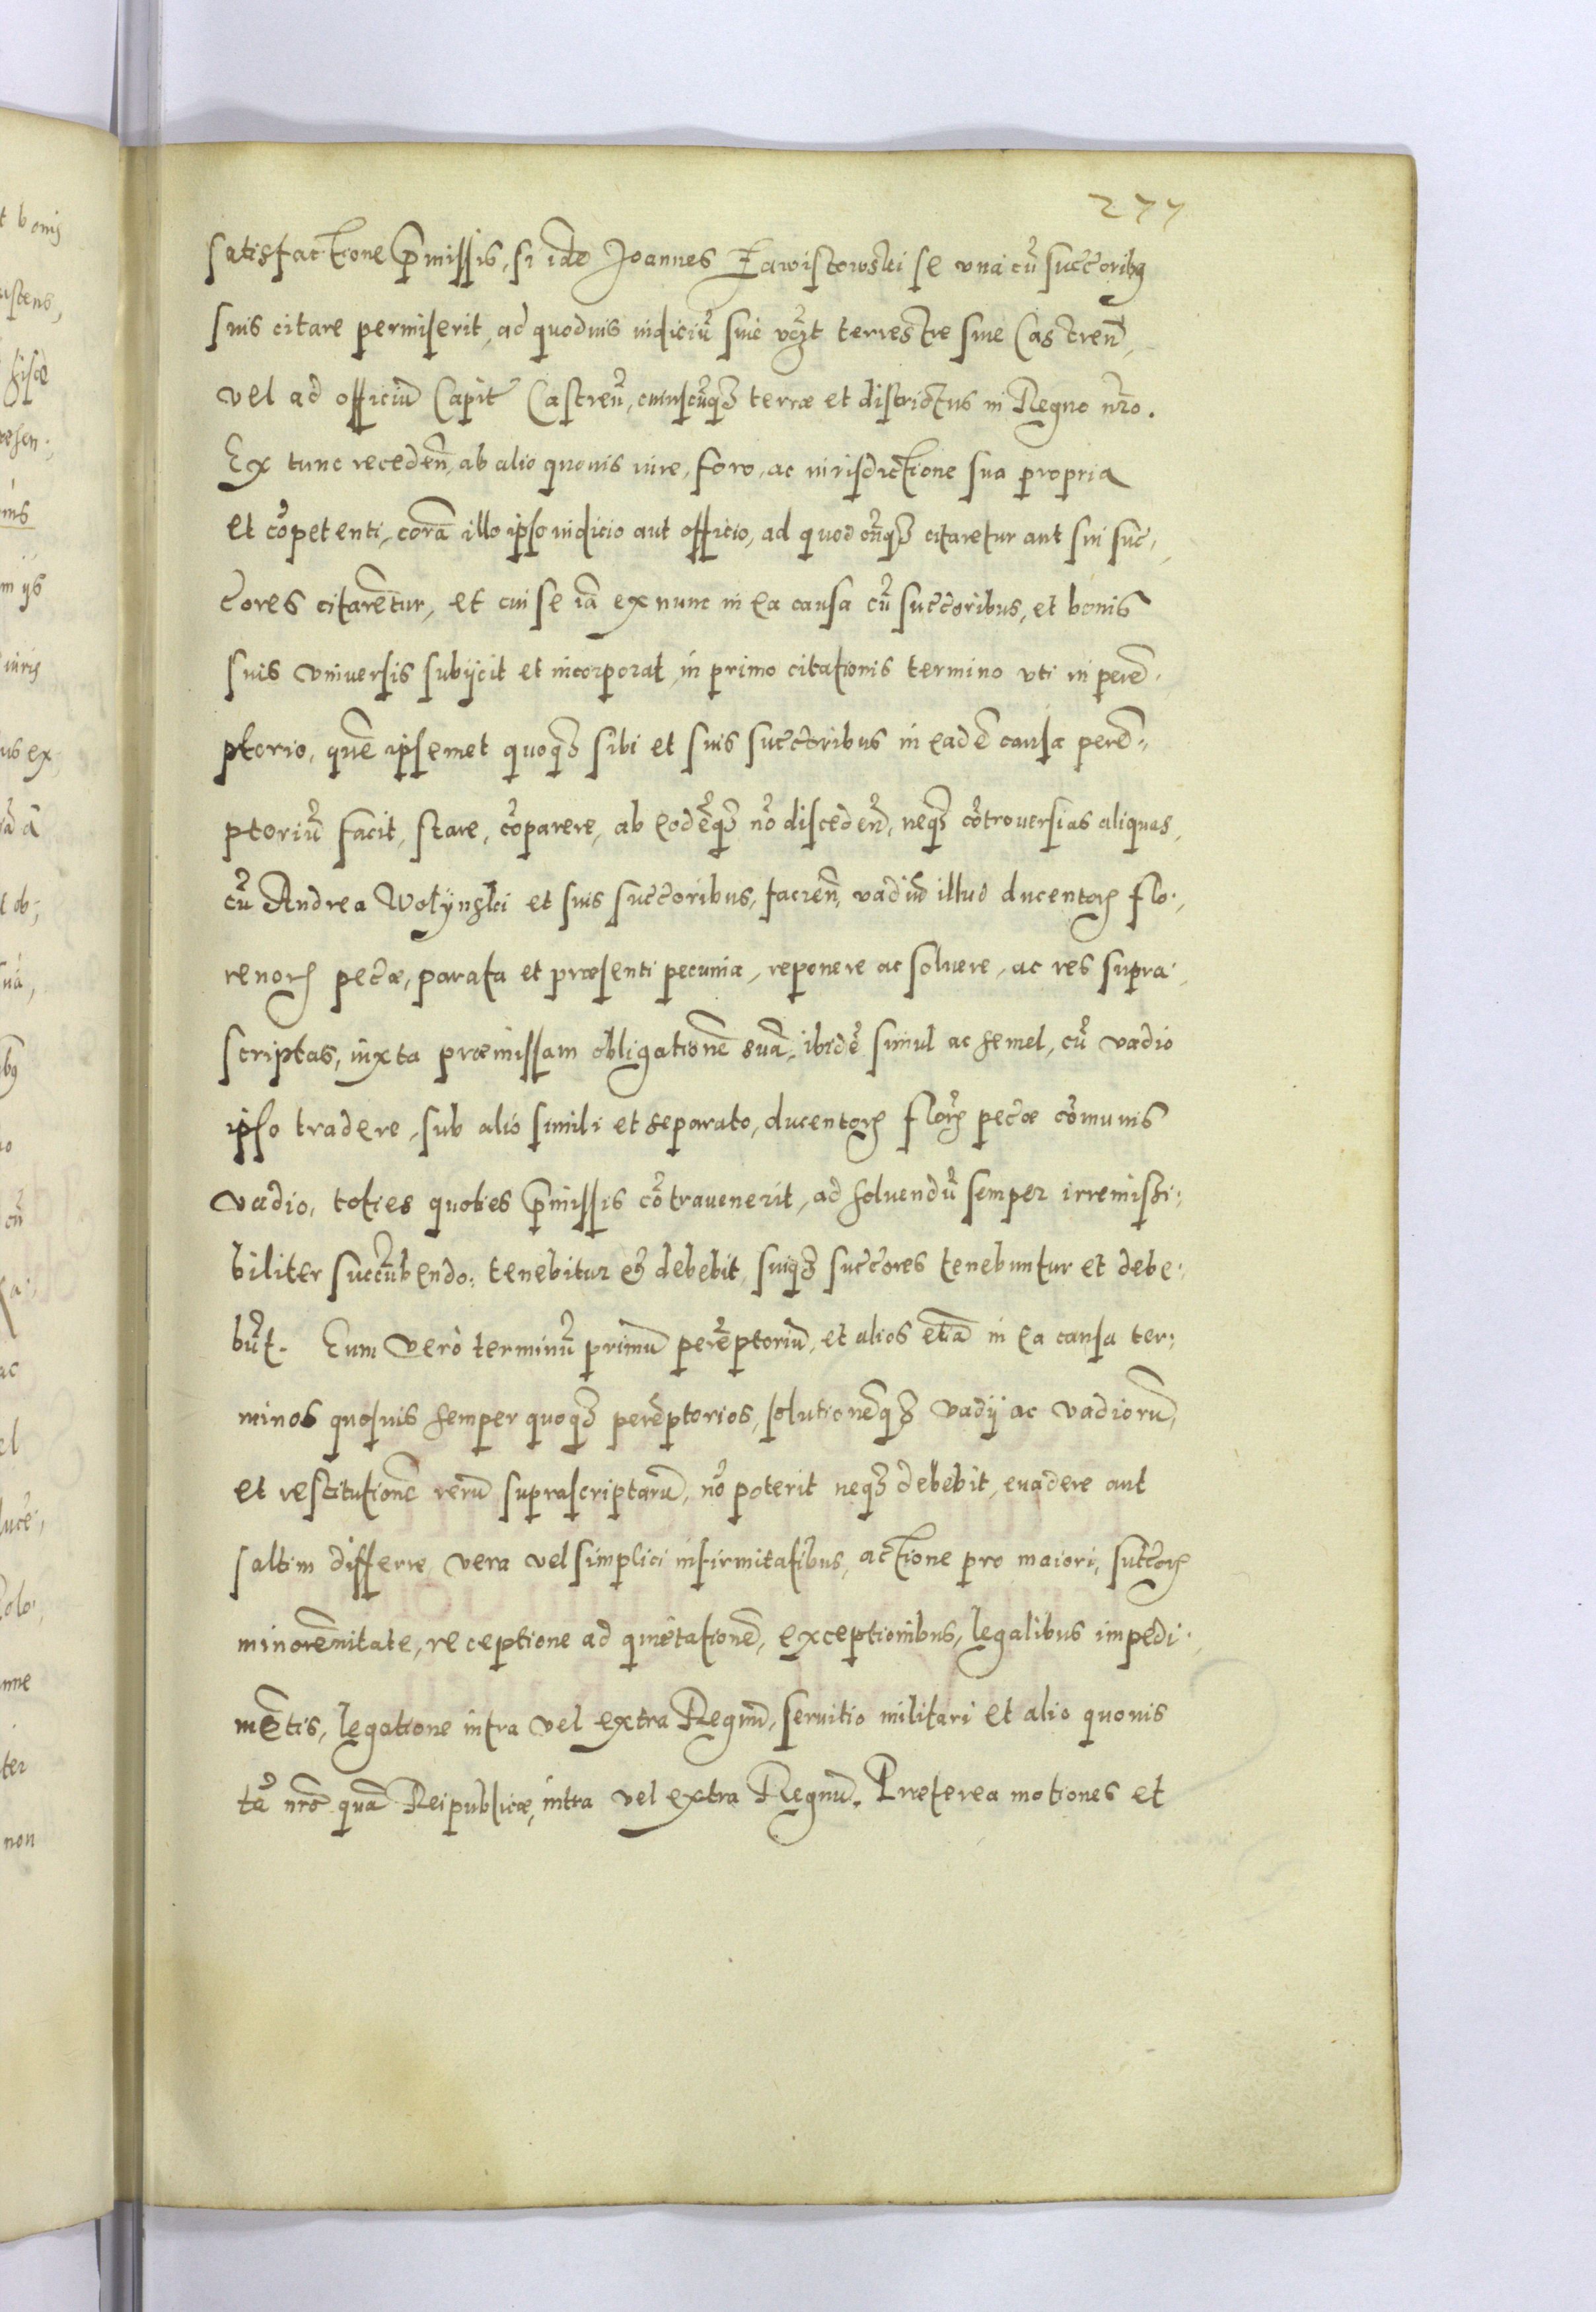 277
satisfactione p̄missis, si idē Joannes Zawistowski se vna cū succ̄oribq
suis citare permiserit, ad quoduis iudiciū siue vc̄zt terrestre siue Castren̄,
vel ad officiū Capit̄ Castren̄, cuiuscūqz terræ et districtus in Regno nr̄o.
Ex tunc receden̄, ab alio quouis iure, foro, ac iurisdictione sua propria
et cōpetenti, corā illo ipso iudicio aut officio, ad quodcūqz citaretur aut sui suc,
c̄ores citarētur, et cui se iā ex nunc in ea causa cū succ̄oribus, et bonis
suis vniuersis subijcit et incorporat, in primo citationis termino vti in perē,
ptorio, quē ipsemet quoqz sibi et suis succ̄oribus in eadē causa perē,,
ptoriū facit, stare, cōparere, ab eodēqz nō disceden̄, neqz cōtrouersias aliquas,
cū Andrea Wołÿnski et suis succ̄oribus, facien̄, vadiū illud ducentorꝝ flo,
renorꝝ pec̄æ, parata et præsenti pecunia, reponere ac soluere, ac res supra,
scriptas, iuxta præmissam obligationē suā, ibidē simul ac semel, cū vadio
ipso tradere, sub alio simili et separato, ducentorꝝ florꝝ pec̄æ cōmunis
vadio, toties quoties p̄missis cōtrauenerit, ad soluendū semper irremissi,
biliter succūbendo: tenebitur et debebit, suiqz succ̄ores tenebuntur et debe,
būt. Eum verò terminū primū perēptoriū, et alios etiā in ea causa ter,
minos quosuis semper quoqz perēptorios, solutionēqz vadij ac vadiorū,
et restitutionē rerū suprascriptarū, nō poterit neqz debebit, euadere aut
saltim differre vera vel simplici infirmitatibus, actione pro maiori, succ̄orꝝ
minorēnitate, receptione ad quietationē, exceptionibus, legalibus impedi,
mētis, legatione intra vel extra Regnū, seruitio militari et alio quouis
tā nr̄o quā Reipublicæ, intra vel extra Regnū. Præterea motiones et